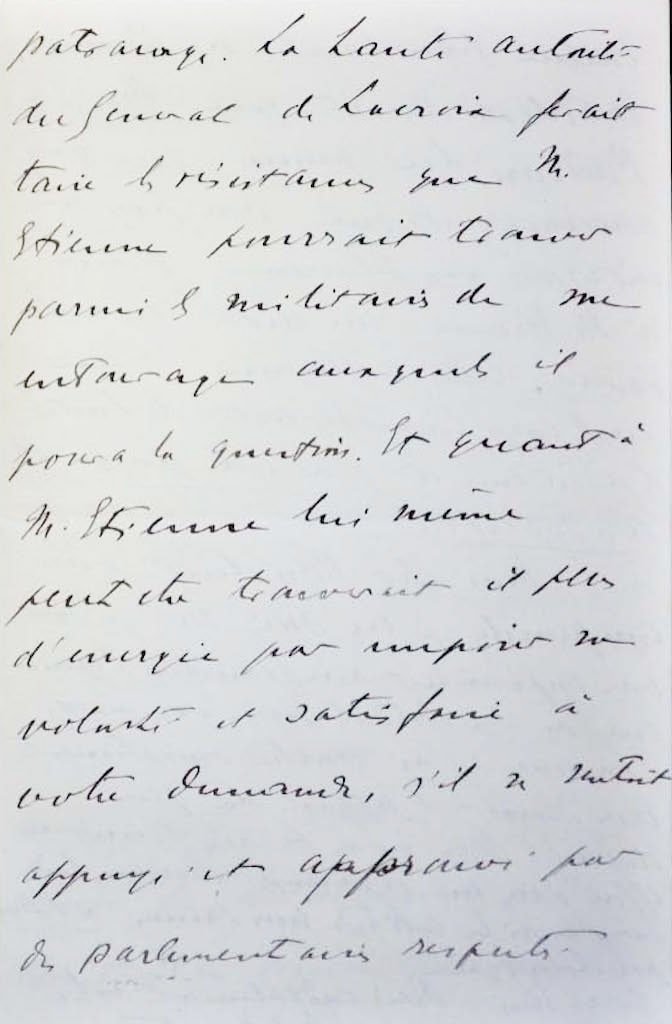 patronage. La haute autorité
du Général de Lacroix ferait
taire les résistances que M.
Etienne pourrait trouver
parmi les militaires de son
entourage auxquels il
posera la question. Et quant à
M. Etienne lui même
peut etre trouverait il plus
d'energie pour imposer sa
volonté et satisfaire à
votre demande, s'il se sentait
appuyé et approuvé par
des parlementaires respectés